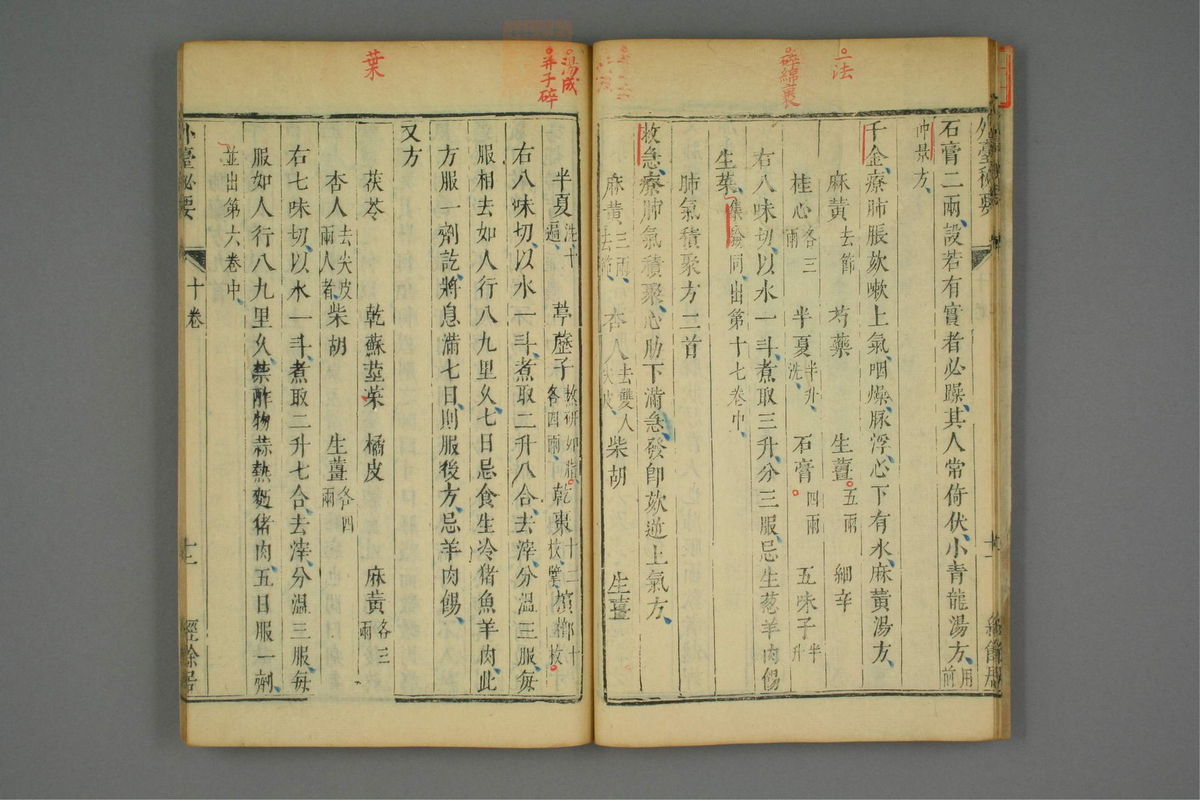 二法
碎綿裹
外臺秘要
石膏二兩設若有實者必躁其人常倚伏小青龍湯方用前
仲景方
千金療肺脹欬嗽上氣咽燥脉浮心下有水麻黄湯方
麻黄去節 芍藥 生薑五兩 細辛
桂心各三兩 半夏半升洗 石膏四兩 五味子半升
右八味切以水一斗煮取三升分三服忌生葱羊肉餳
生菜集驗同出第十七卷中
肺氣積聚方二首
救急療肺氣積聚心肋下滿急發卽欬逆上氣方
麻黄三兩去節 杏人去雙人尖皮 柴胡 生薑
湯成
弄子碎
葉
半夏洗十遍 葶藶子熬研如脂各四兩 乾棗十二枚擘 檳榔十枚
右八味切以水一斗煮取二升八合去滓分溫三服每
服相去如人行八九里久七日忌食生冷猪魚羊肉此
方服一劑訖將息滿七日則服後方忌羊肉餳
又方
茯苓 乾蘇莖葉 橘皮 麻黄各三兩
杏人去尖皮兩人者 柴胡 生薑各四兩
右七味切以水一斗煮取二升七合去滓分溫三服每
服如人行八九里久禁酢物蒜熱麪猪肉五日服一劑
並出第六卷中
外臺秘要 十卷 十一 經餘居